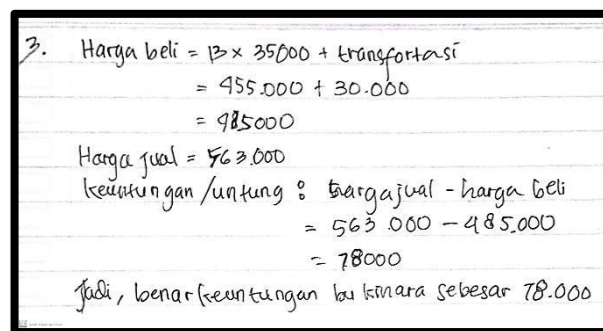 3. Harga beli = 13 x 35000 + transfortasi
= 455.000 + 30.000
= 485000
Harga jual = 563.000
keuntungan /untung : hargajual - harga beli
= 563.000 - 485.000
= 78000
Jadi, benar keuntungan bu kinara sebesar 78.000